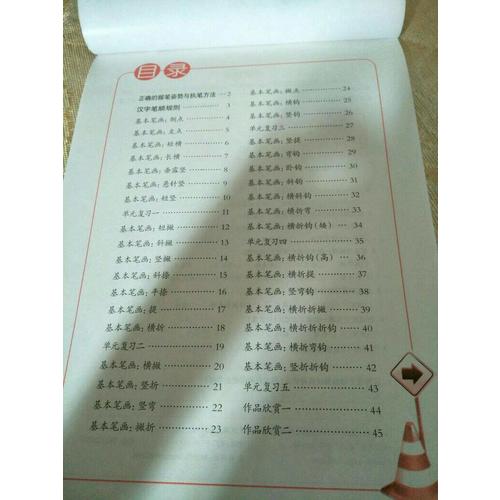 目录
正确的握笔姿势与执笔方法 …2
汉字笔顺规则 ………… 3
基本笔画：侧点 ………… 4
基本笔画：左点 ………… 5
基本笔画：短横 ………… 6
基本笔画：长横 ………… 7
基本笔画：垂露竖 ……… 8
基本笔画：悬针竖 ……… 9
基本笔画：短竖 ………… 10
单元复习一 ………… 11
基本笔画：短撇 ………… 12
基本笔画：斜撇 ………… 13
基本笔画：竖撇 ………… 14
基本笔画：斜捺 ………… 15
基本笔画：平捺 ………… 16
基本笔画：提 ………… 17
基本笔画：横折 ………… 18
单元复习二 ………… 19
基本笔画：横撇 ………… 20
基本笔画：竖折 ………… 21
基本笔画：竖弯 ………… 22
基本笔画：撇折 ………… 23
基本笔画：撇点 ………… 24
基本笔画：横钩 ………… 25
基本笔画：竖钩 ………… 26
单元复习三 ………… 27
基本笔画：竖提 ………… 28
基本笔画：弯钩 ………… 29
基本笔画：卧钩 ………… 30
基本笔画：斜钩 ………… 31
基本笔画：横斜钩 ……… 32
基本笔画：横折弯 ……… 33
基本笔画：横折钩（矮） … 34
单元复习四 ………… 35
基本笔画：横折钩（高） … 36
基本笔画：横折提 ……… 37
基本笔画：竖弯钩 ……… 38
基本笔画：横折折撇 …… 39
基本笔画：横折折折钩 … 40
基本笔画：横折弯钩 …… 41
基本笔画：竖折折钩 …… 42
单元复习五 ………… 43
作品欣赏一 ………… 44
作品欣赏二 ………… 45